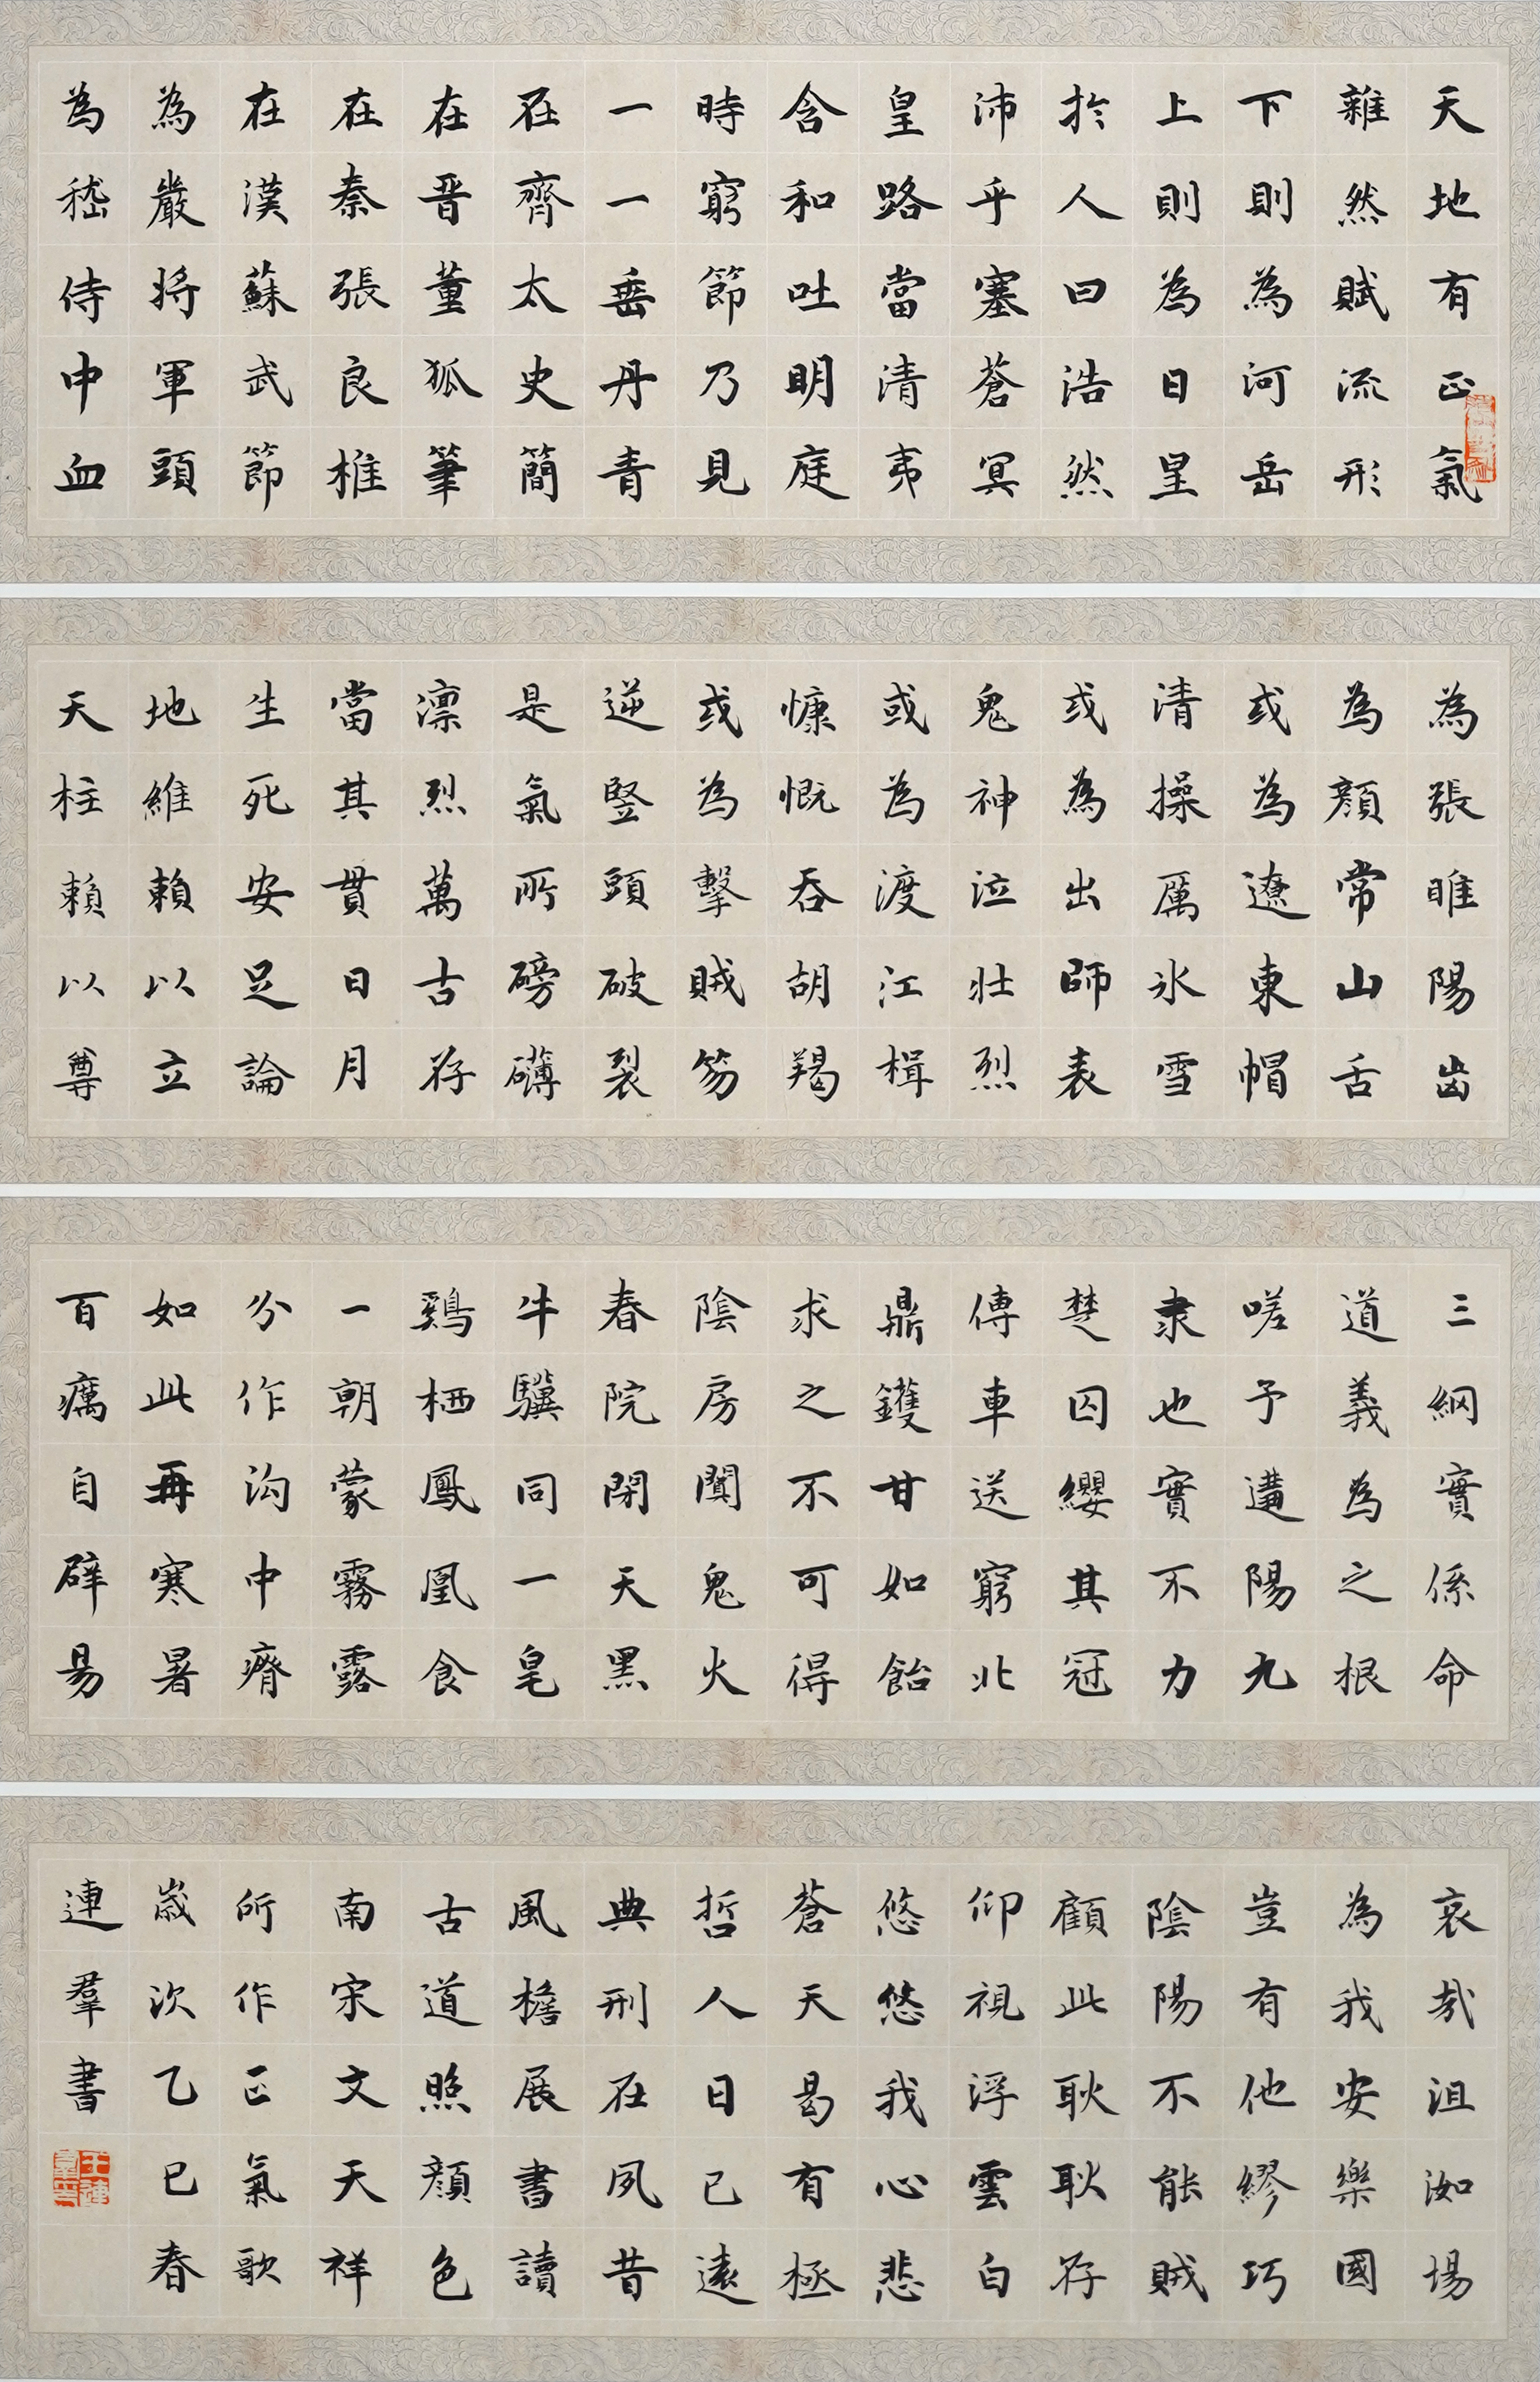 天地有正氣
雜然賦流形
下則為河岳
上則為日星
於人曰浩然
沛乎塞蒼冥
皇路當清夷
含和吐明庭
時窮節乃見
一一垂丹青
在齊太史簡
在晋董狐筆
在秦張良椎
在漢蘇武節
為嚴將軍頭
為嵇侍中血
為張睢陽齒
為顏常山舌
或為遼東帽
清操厲冰雪
或為出師表
鬼神泣壯烈
或為渡江楫
慷慨吞胡羯
或為擊賊笏
逆豎頭破裂
是氣所磅礴
凛烈萬古存
當其貫日月
生死安足論
地維賴以立
天柱賴以尊
三綱實係命
道義為之根
嗟予遘陽九
隶也實不力
楚囚纓其冠
傳車送窮北
鼎鑊甘如飴
求之不可得
陰房闃鬼火
春院閉天黑
牛驥同一皂
鷄栖鳳凰食
一朝蒙霧露
分作溝中瘠
如此再寒暑
百癘自辟易
哀哉沮洳場
為我安樂國
豈有他繆巧
陰陽不能賊
顧此耿耿存
仰視浮雲白
悠悠我心悲
蒼天曷有極
哲人日已遠
典刑在夙昔
風檐展書讀
古道照顏色
南宋文天祥
所作正氣歌
歲次乙巳春
連羣書
王連羣印